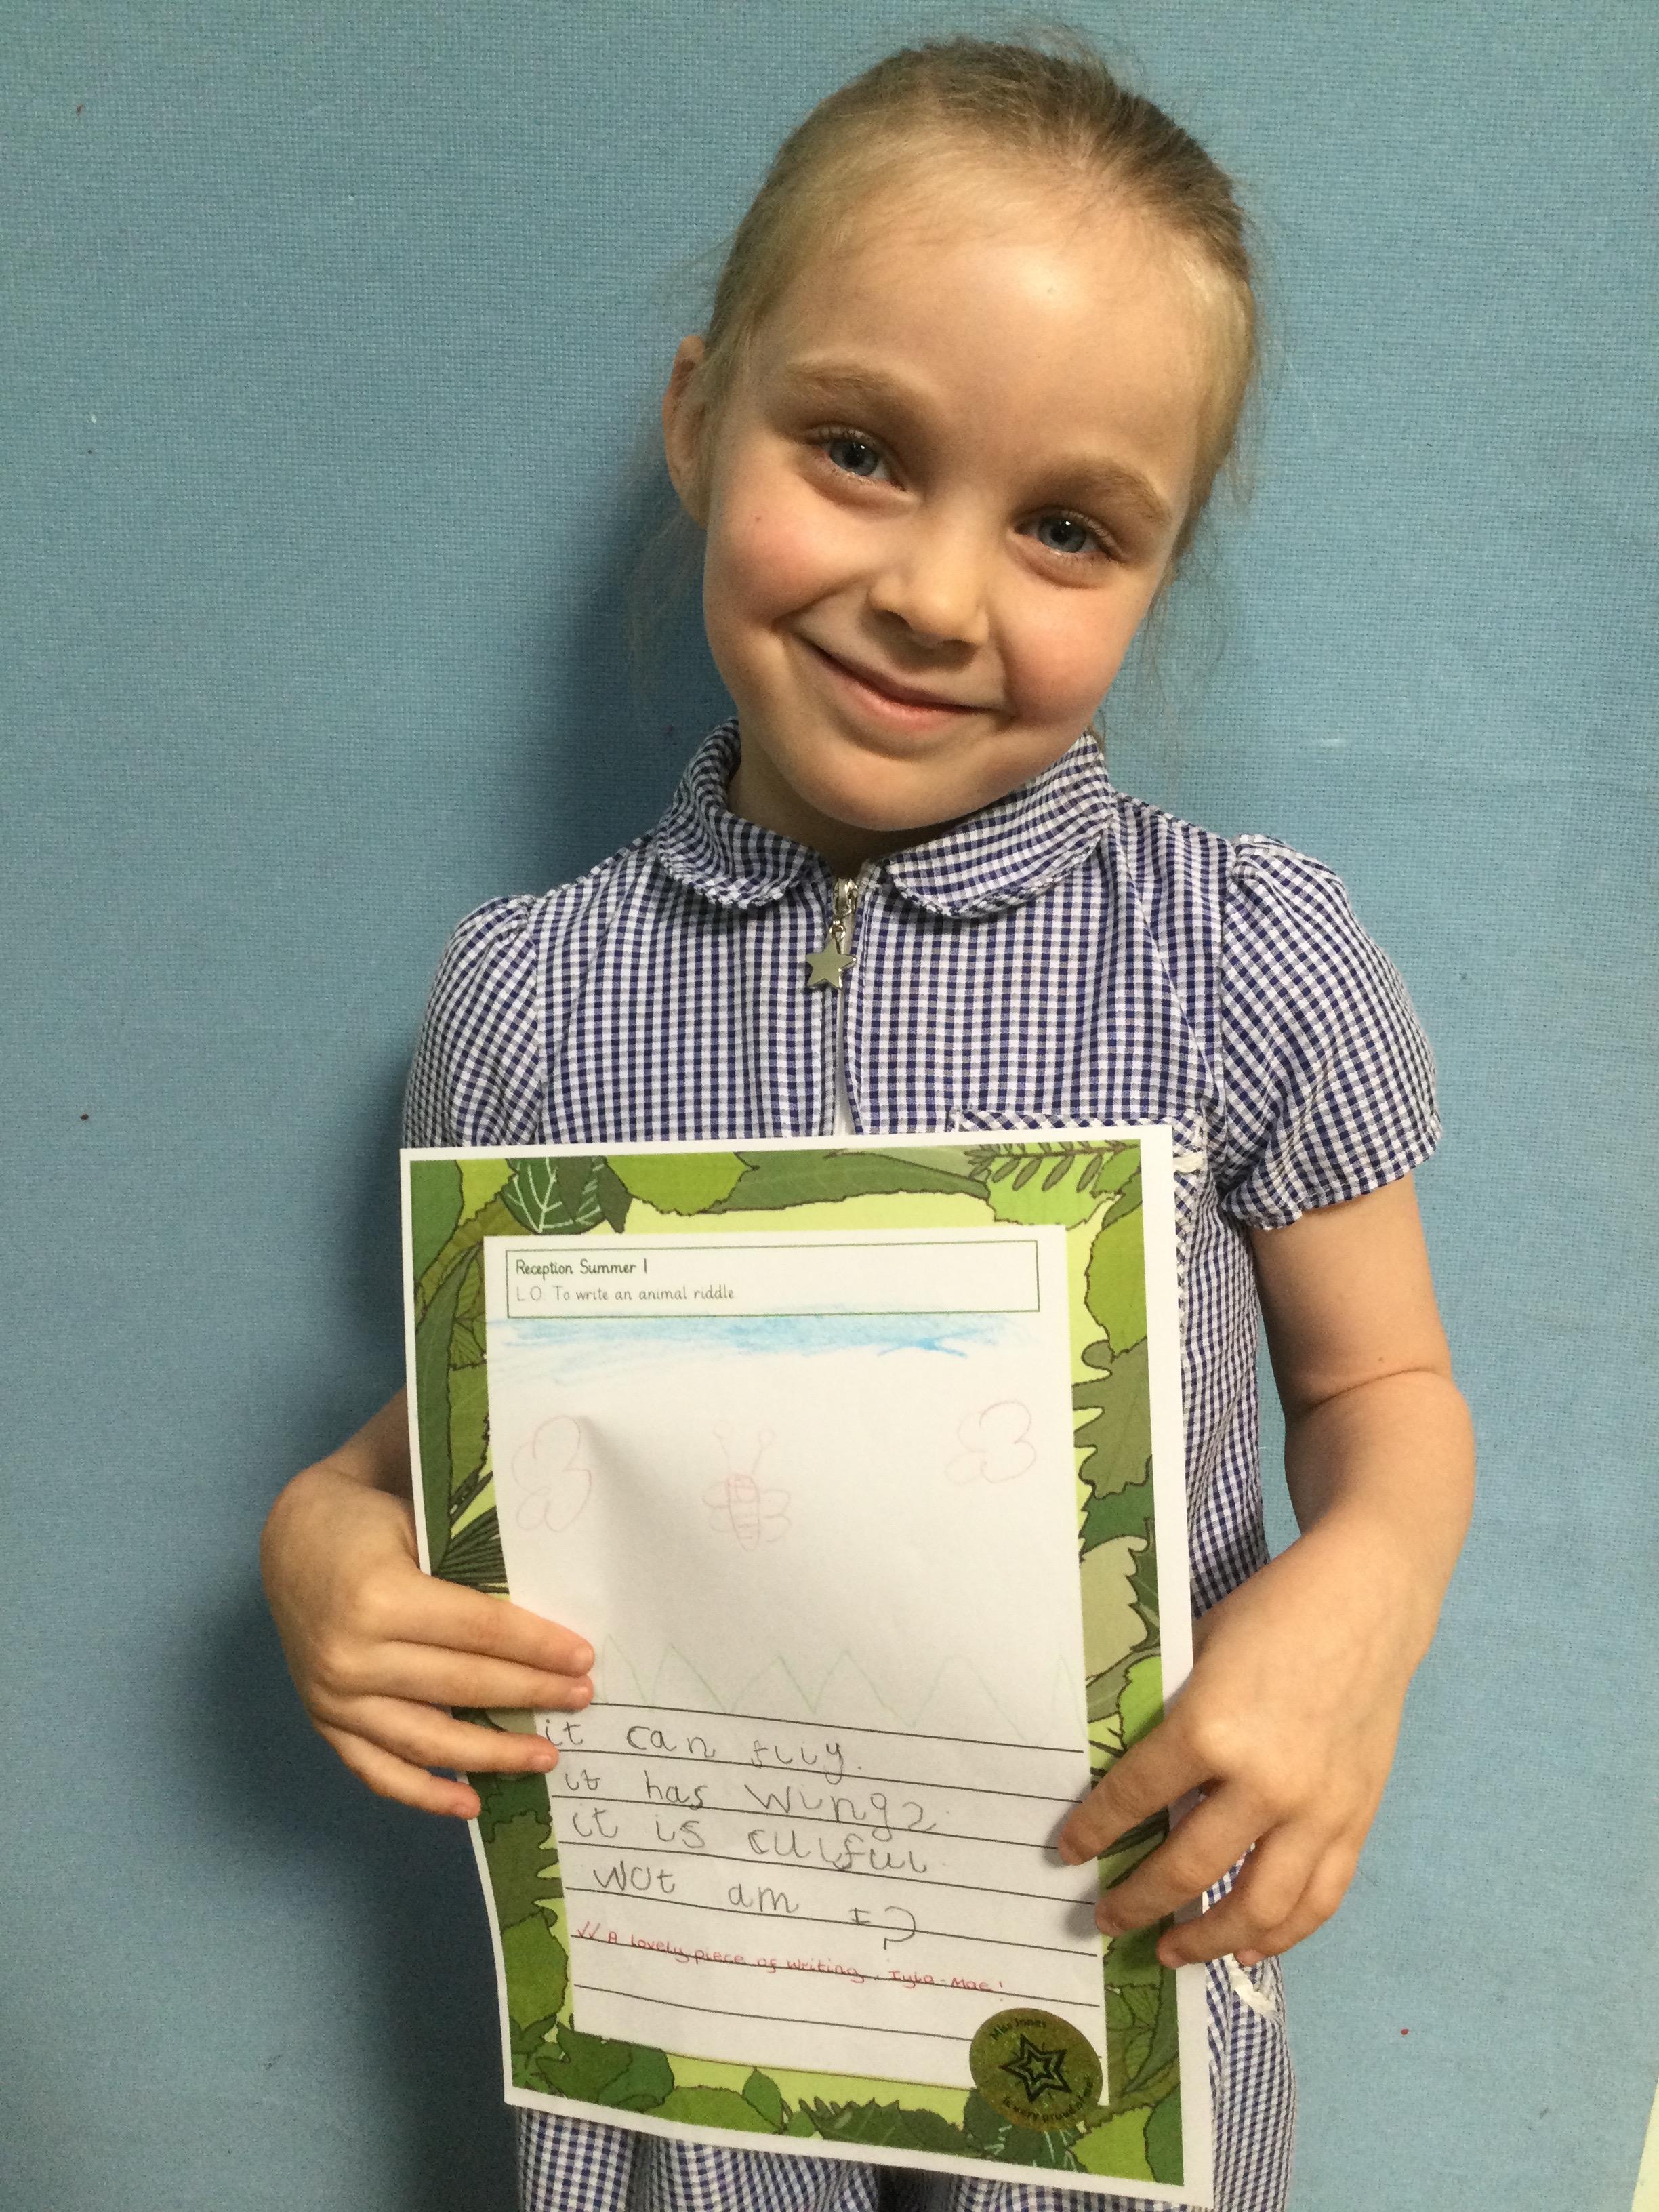 Reception Summer 1
L.O. To write an animal riddle
it can fliy.
it has wings
it is culful.
wot am I?
✓✓ A lovely piece of writing, Iyla-Mae!
Miss Jones
is very proud